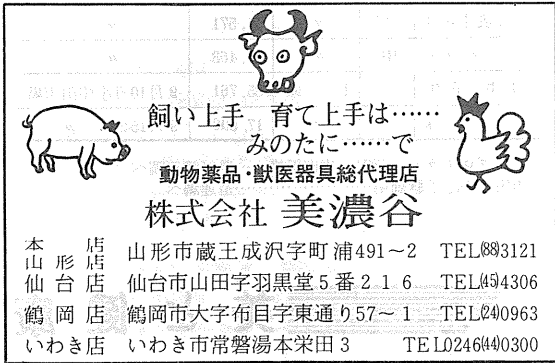 飼い上手 育て上手は……
みのたに……で
動物薬品・獣医器具総代理店
株式会社 美濃谷
本店
山形店 山形市蔵王成沢字町浦491～2 TEL(88)3121
仙台店 仙台市山田字羽黒堂5番216 TEL(45)4306
鶴岡店 鶴岡市大字布目字東通り57～1 TEL(24)0963
いわき店 いわき市常磐湯本栄田3 TEL0246(44)0300